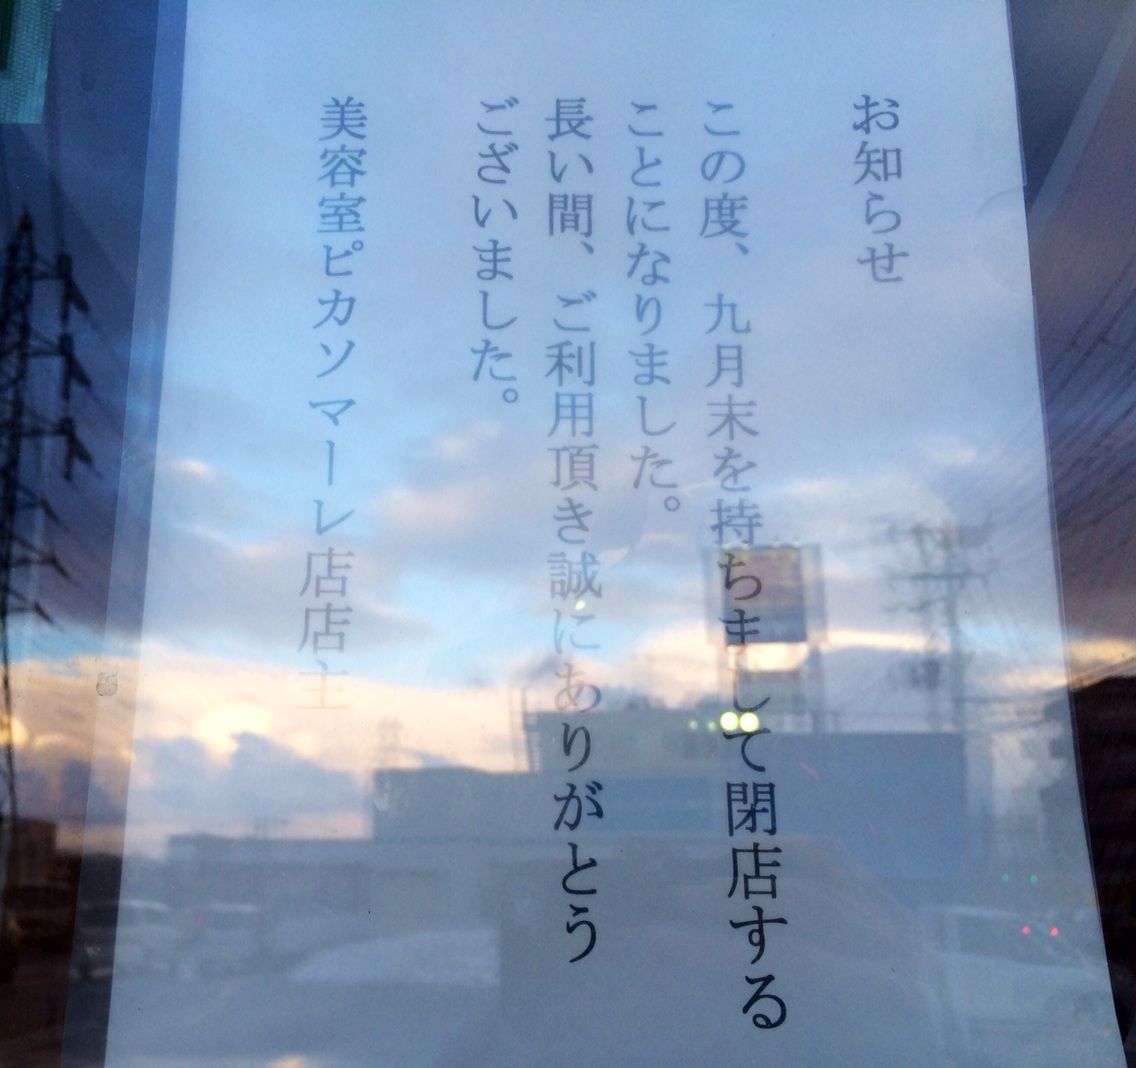 お知らせ
この度、九月末を持ちまして閉店する
ことになりました。
長い間、ご利用頂き誠にありがとう
ございました。
美容室ピカソマーレ店店主